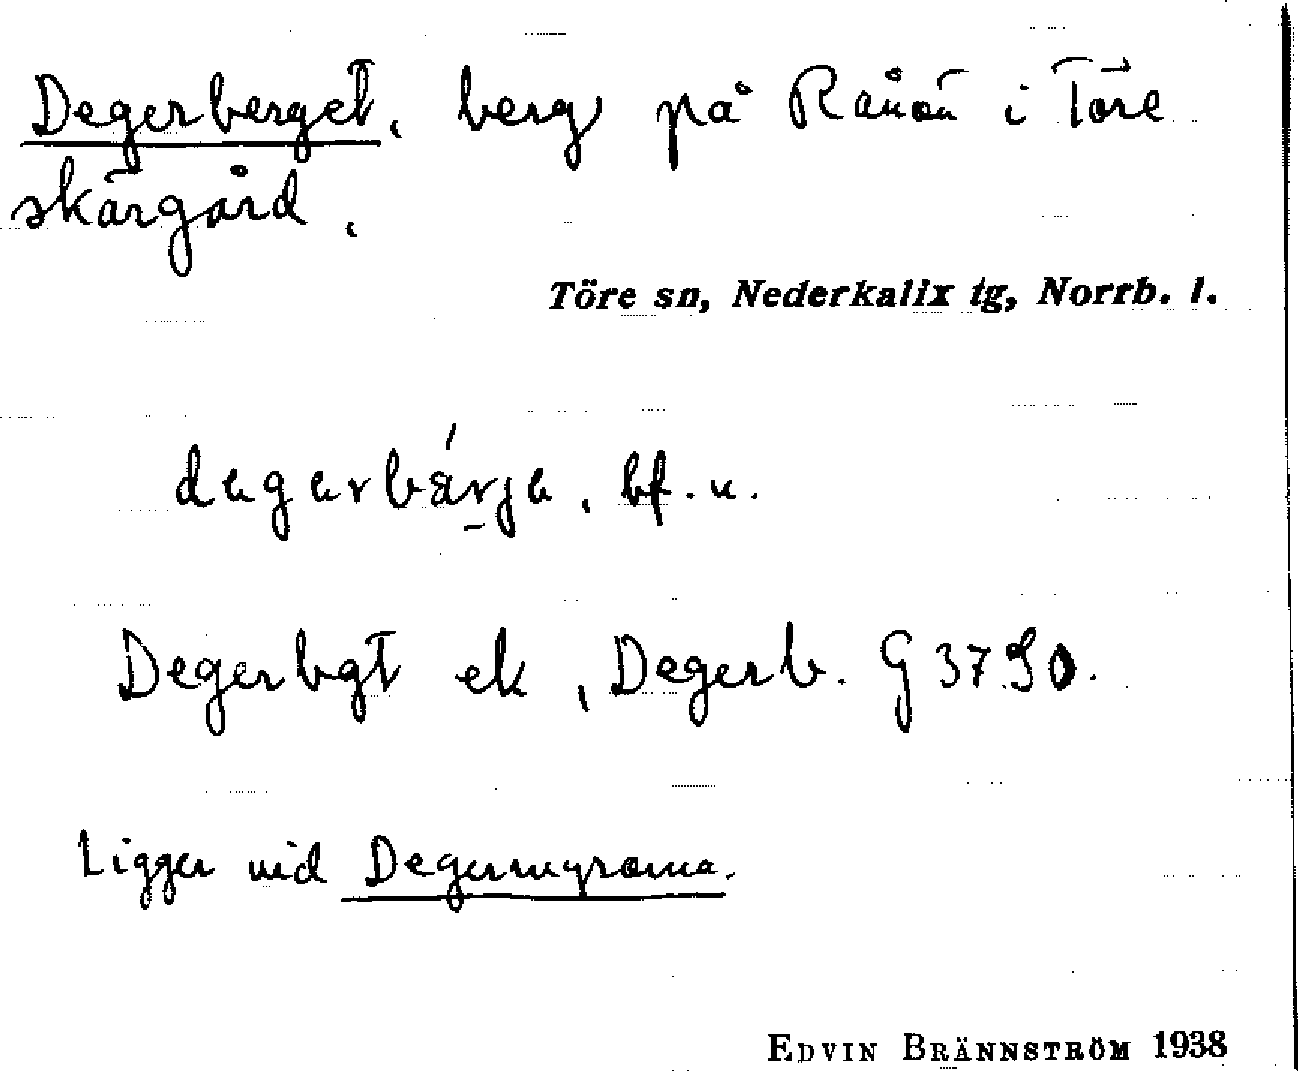 Degerberget, berg på Rånön i Töre
skärgård.
Töre sn, Nederkalix tg, Norrb. l.
degerbärje, bf. n.
Degerbgt ek, Degerb. G 3790.
Ligger vid Degermyrarna.
EDVIN BRÄNNSTRÖM 1938